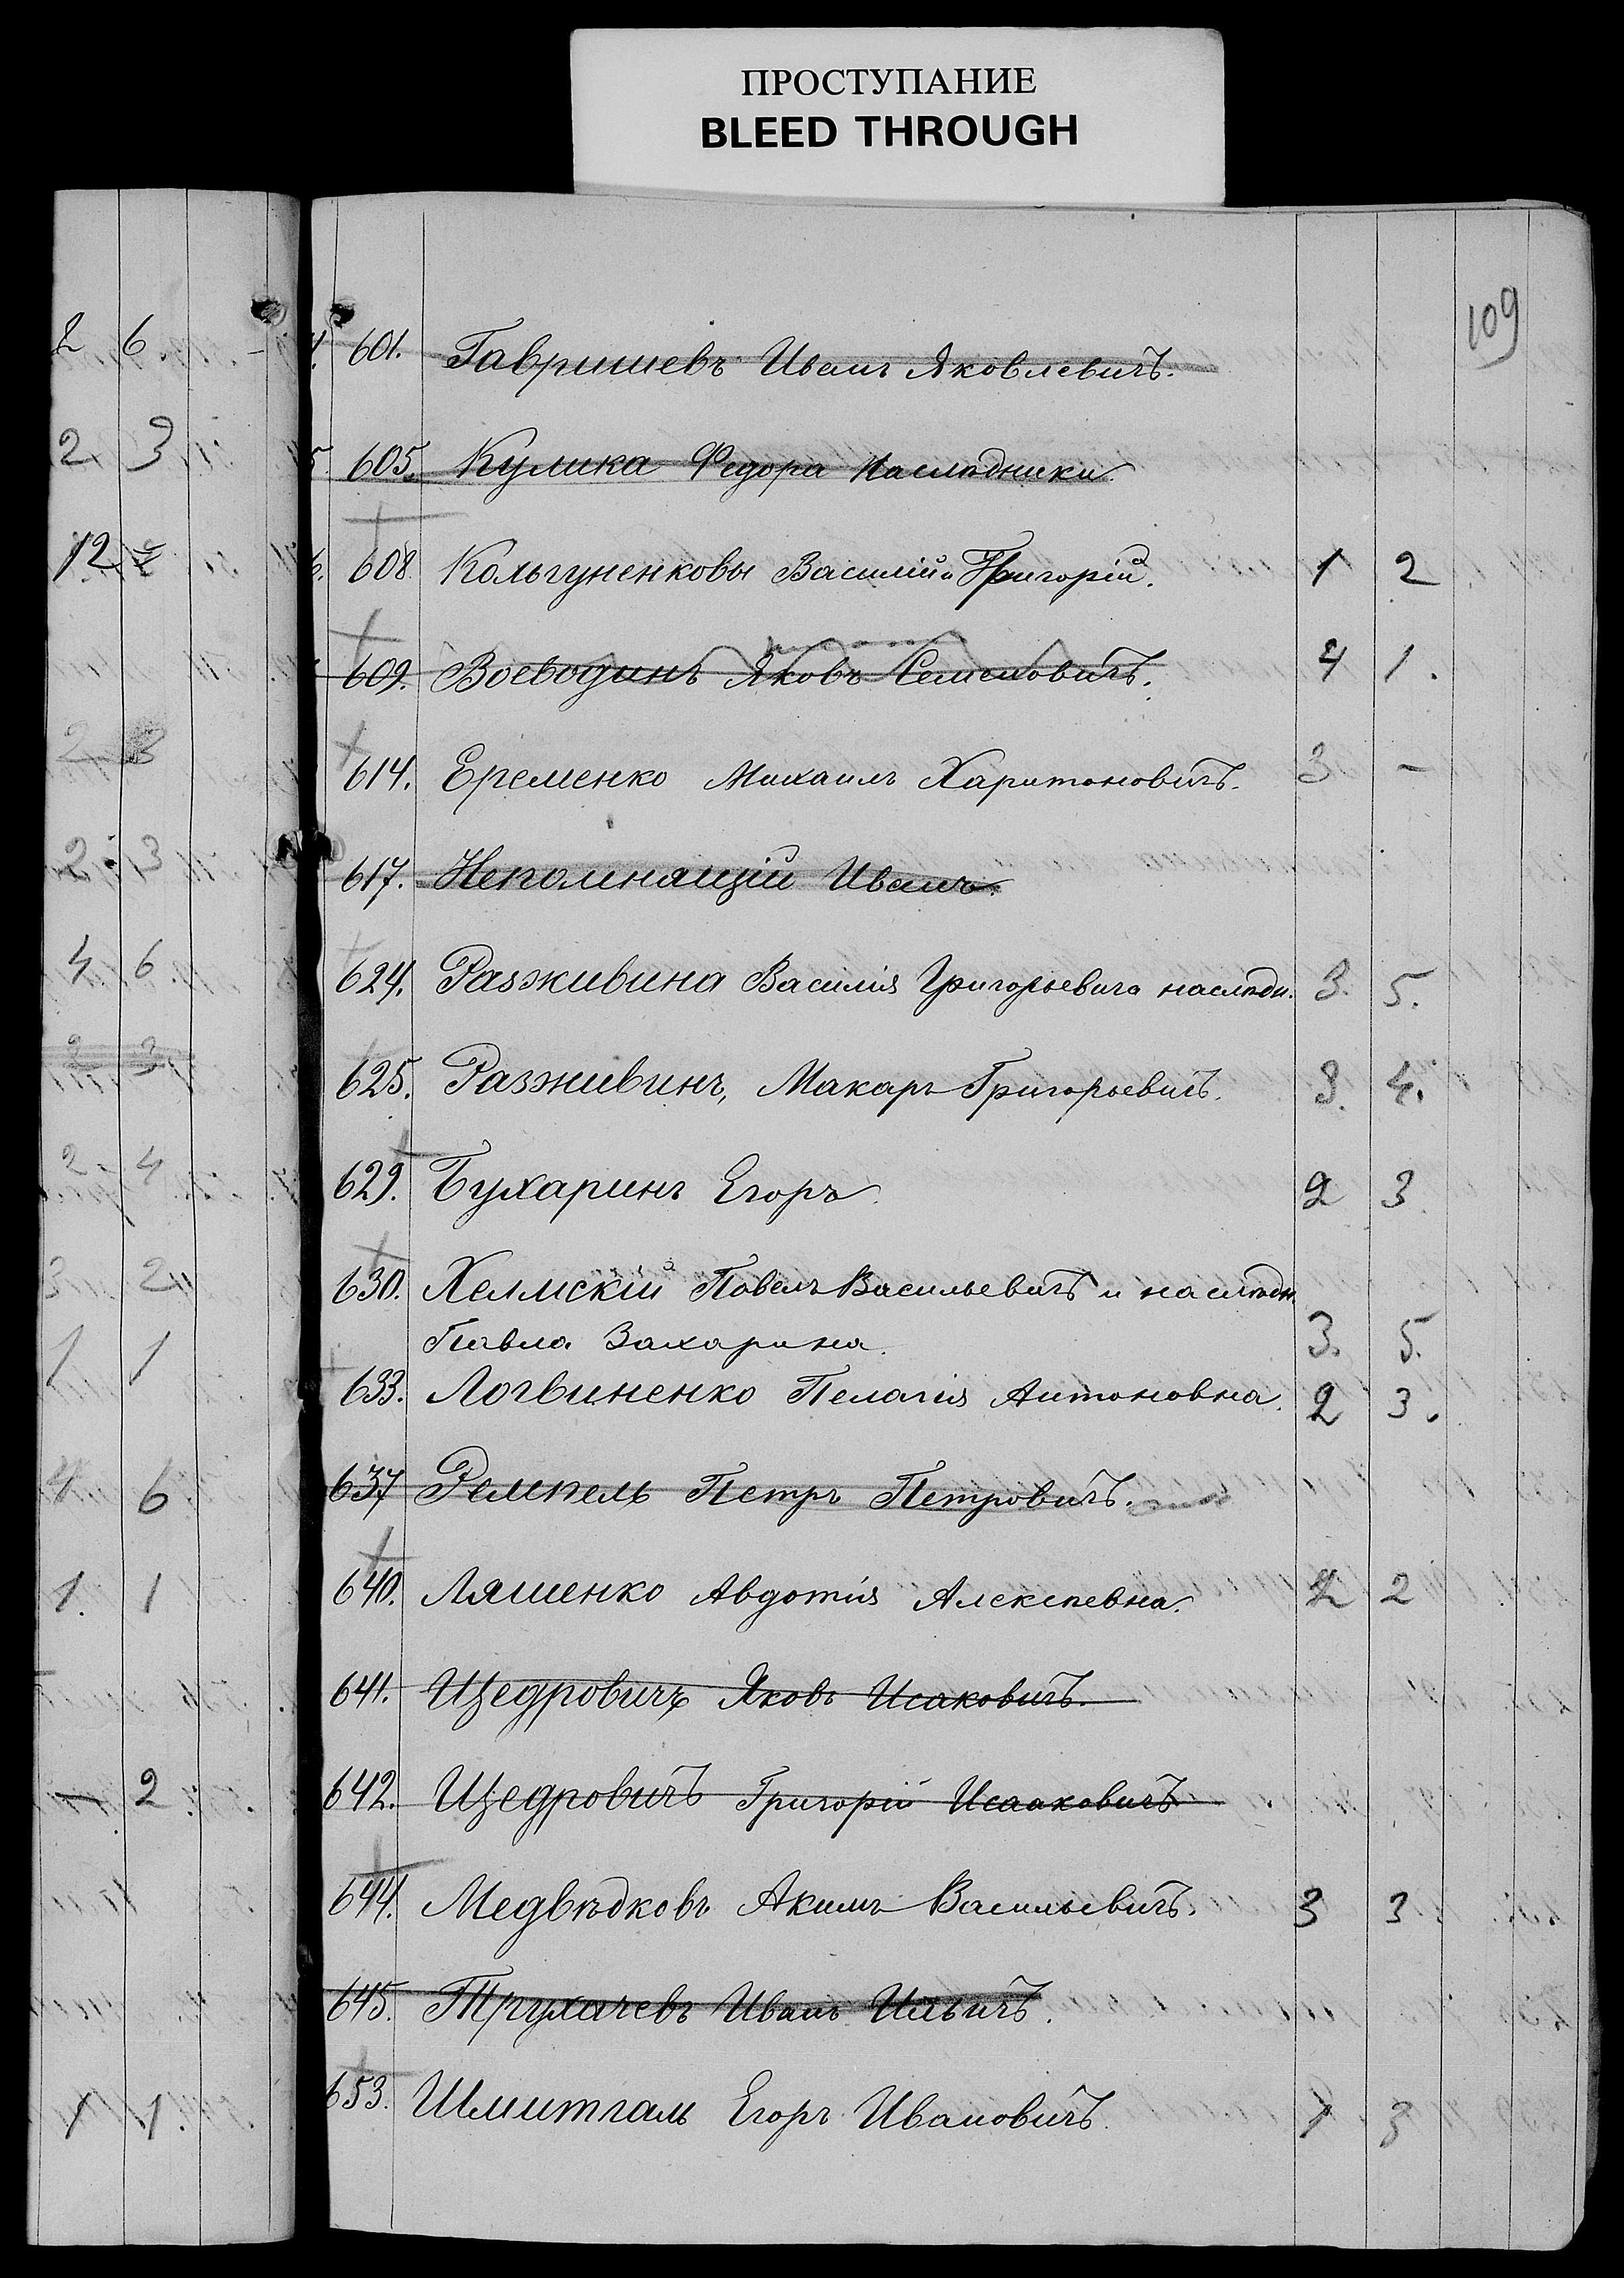 ПРОСТУПАНИЕ
BLEED THROUGH
109
2 6.
2. 3
12
2 3
4 6
2 3
2 4
3 2
1 1
4 6
1. 1
— 2
1 1.
601. Гавришевъ Иванъ Яковлевичъ.
605. Кулика Федора Наслѣдники.
608. Кольгуненковы Василій и Григорій. 1 2
609. Воеводинъ Яковъ Семеновичъ. 4 1.
614. Еременко Михаилъ Харитоновичъ. 3 -
617. Непомнящій Иванъ.
624. Разживина Василія Григорьевича наслѣдн. 3. 5.
625. Разживинъ, Макаръ Григорьевичъ. 3. 4.
629. Бухаринъ Егоръ. 2 3
630. Хелмскій Павелъ Васильевичъ и наслѣдн.
Павла Захарина. 3. 5.
633. Логвиненко Пелагія Антоновна. 2 3.
637 Ремпель Петръ Петровичъ.
640. Ляшенко Авдотія Алексѣевна. 2 2
641. Щедровичъ Яковъ Исаковичъ.
642. Щедровичъ Григорій Исааковичъ
644. Медвѣдковъ Акимъ Васильевичъ. 3 3
645. Трухачевъ Иванъ Ильичъ.
653. Шмитгаль Егоръ Ивановичъ. 1 3